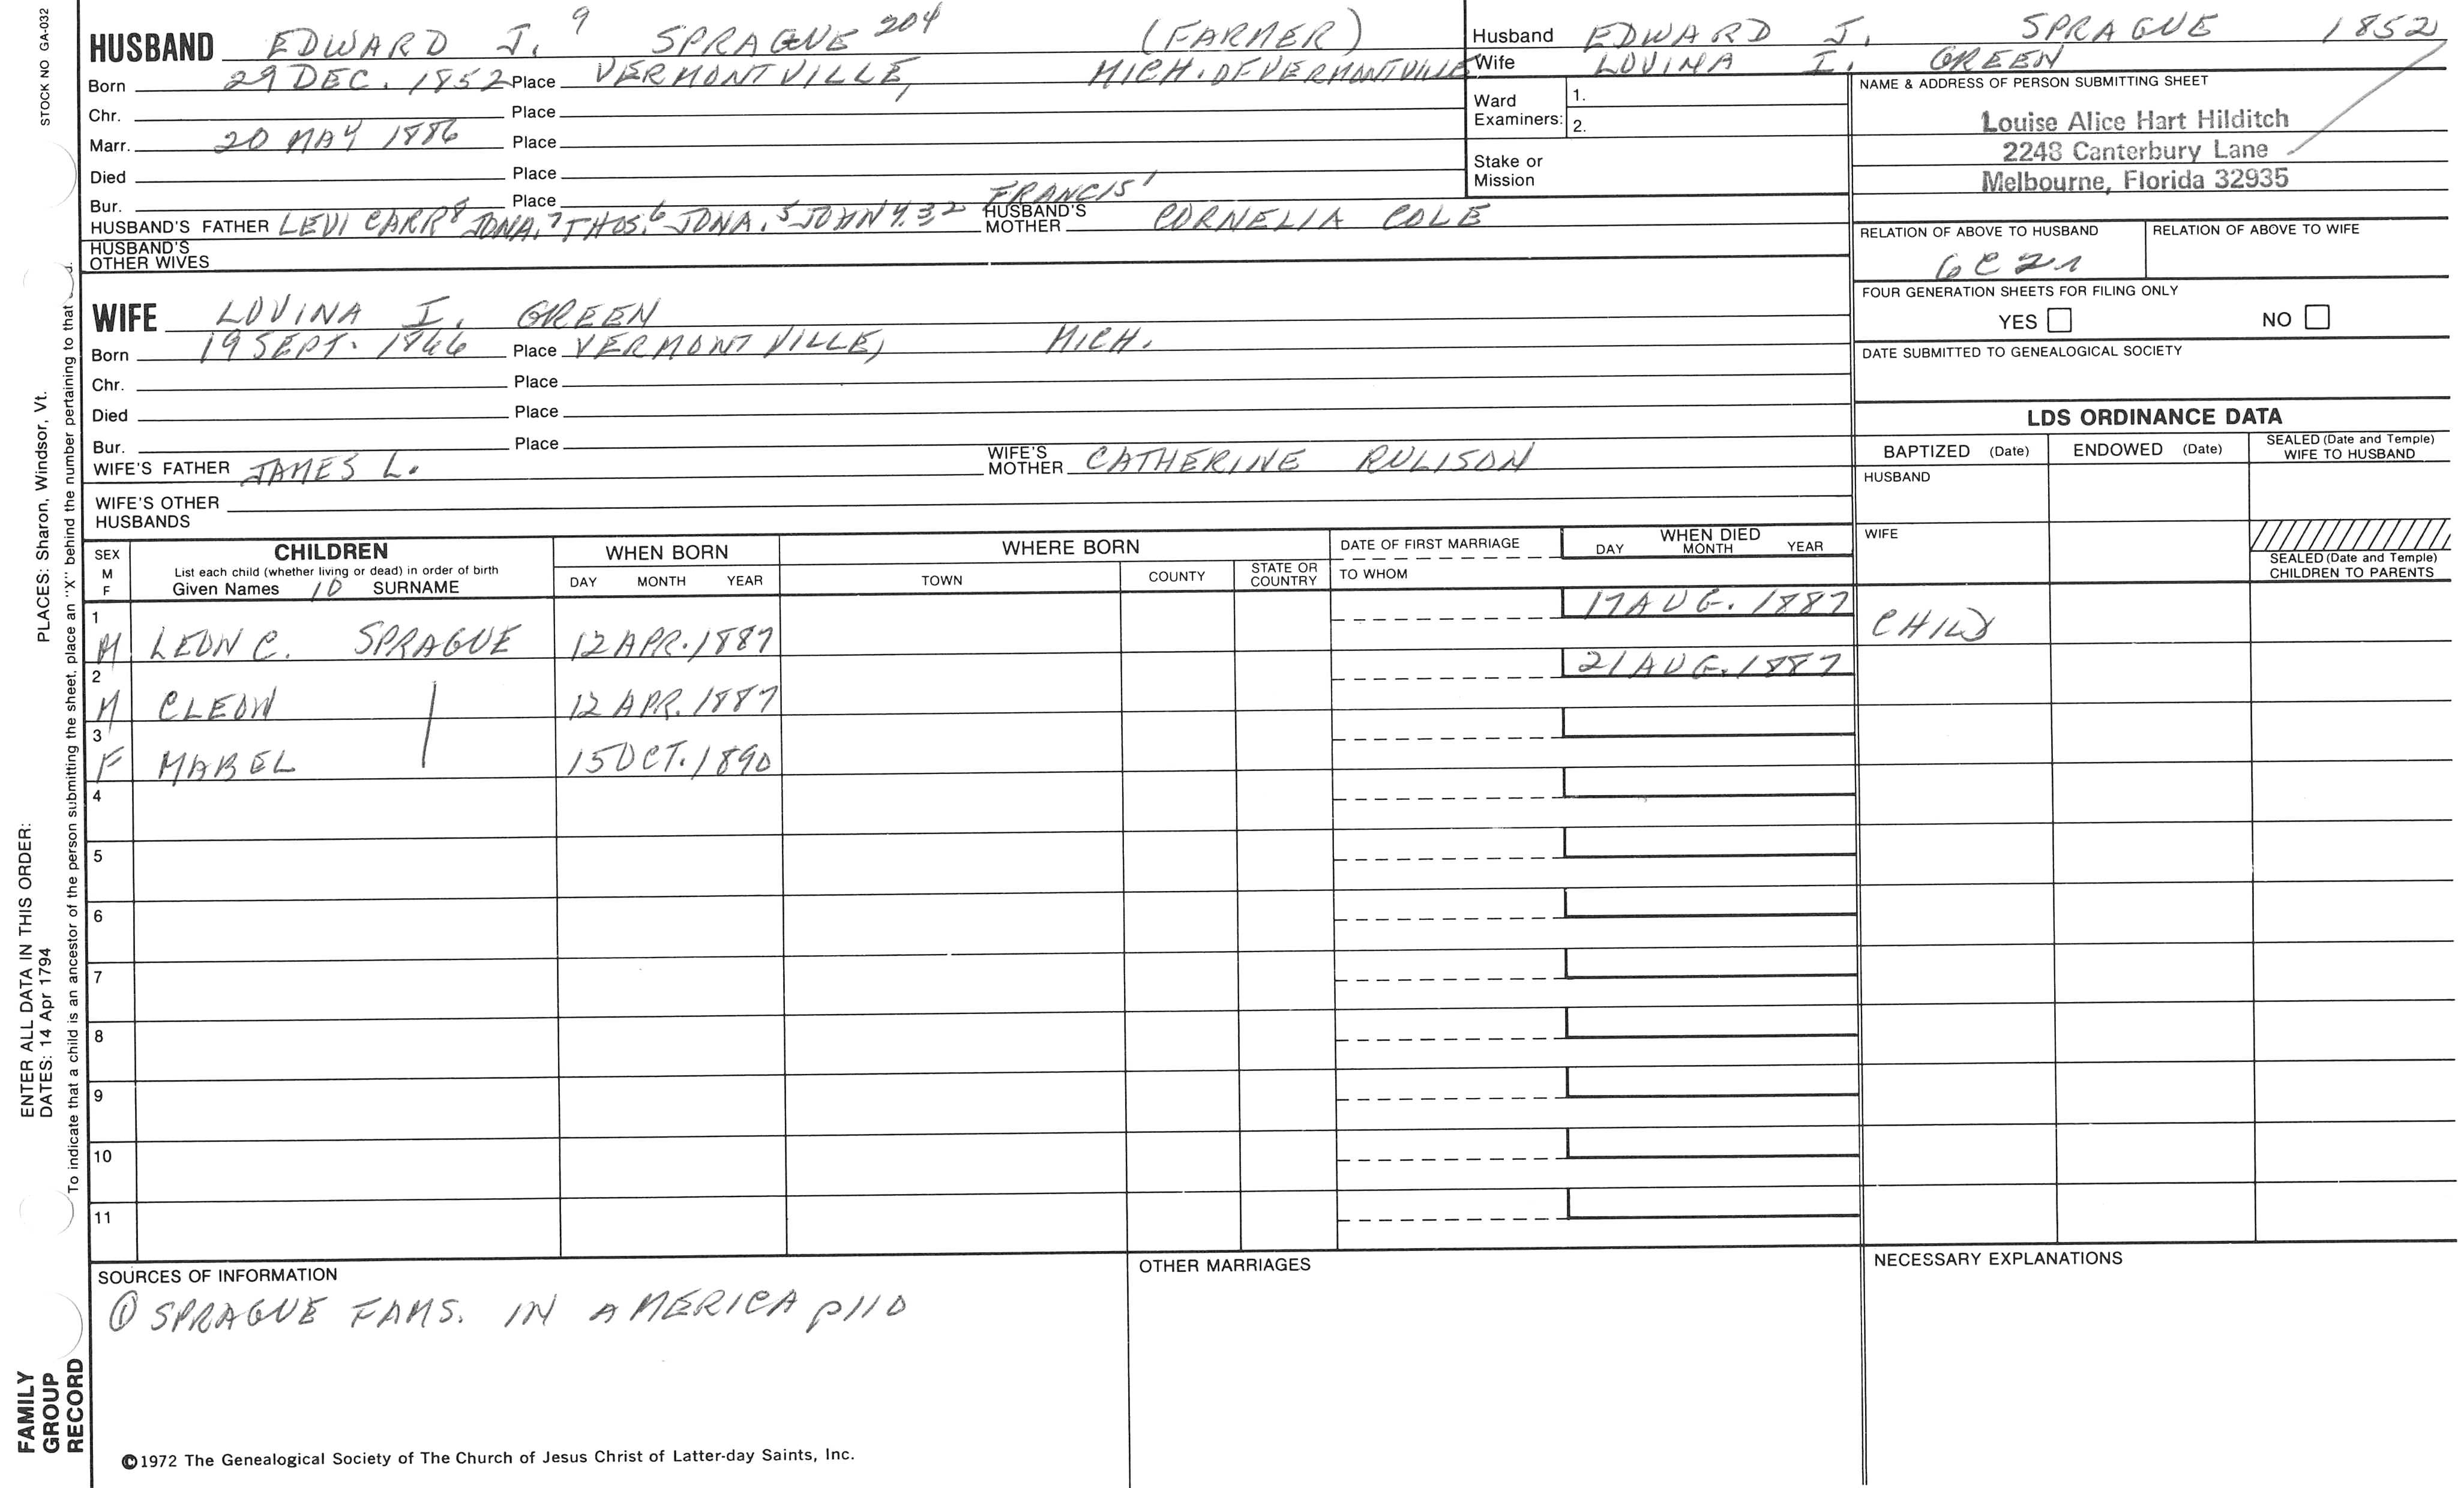 STOCK NO GA-032
HUSBAND EDWARD J. 9 SPRAGUE 204 (FARMER)
Born 29 DEC. 1852 Place VERMONTVILLE, MICH. OF VERMONTVILLE
Chr. Place
Marr. 20 MAY 1886 Place
Died Place
Bur. Place
HUSBAND'S FATHER LEVI CARR 8 JONA. 7 THOS. 6 JONA. 5 JOHN 4.32 FRANCIS 1 HUSBAND'S MOTHER CORNELIA COLE
HUSBAND'S OTHER WIVES
Husband EDWARD J. SPRAGUE 1852
Wife LOVINA I. GREEN
Ward Examiners: 1.
2.
Stake or Mission
NAME & ADDRESS OF PERSON SUBMITTING SHEET
Louise Alice Hart Hilditch
2248 Canterbury Lane
Melbourne, Florida 32935
RELATION OF ABOVE TO HUSBAND RELATION OF ABOVE TO WIFE
6C2r
FOUR GENERATION SHEETS FOR FILING ONLY
YES NO
DATE SUBMITTED TO GENEALOGICAL SOCIETY
WIFE LOVINA I. GREEN
Born 19 SEPT. 1866 Place VERMONTVILLE, MICH.
Chr. Place
Died Place
Bur. Place
WIFE'S FATHER JAMES L. WIFE'S MOTHER CATHERINE RULISON
WIFE'S OTHER HUSBANDS
LDS ORDINANCE DATA
BAPTIZED (Date) ENDOWED (Date) SEALED (Date and Temple) WIFE TO HUSBAND
HUSBAND
WIFE
SEALED (Date and Temple) CHILDREN TO PARENTS
SEX M F CHILDREN WHEN BORN WHERE BORN DATE OF FIRST MARRIAGE WHEN DIED
List each child (whether living or dead) in order of birth
Given Names 10 SURNAME DAY MONTH YEAR TOWN COUNTY STATE OR COUNTRY TO WHOM DAY MONTH YEAR
1 M LEON C. SPRAGUE 12 APR. 1887 17 AUG. 1887 CHILD
2 M CLEON | 12 APR. 1887 21 AUG. 1887
3 F MABEL 15 OCT. 1890
4
5
6
7
8
9
10
11
SOURCES OF INFORMATION
① SPRAGUE FAMS. IN AMERICA p110
OTHER MARRIAGES
NECESSARY EXPLANATIONS
©1972 The Genealogical Society of The Church of Jesus Christ of Latter-day Saints, Inc.
FAMILY GROUP RECORD
ENTER ALL DATA IN THIS ORDER:
DATES: 14 Apr 1794
PLACES: Sharon, Windsor, Vt.
To indicate that a child is an ancestor of the person submitting the sheet, place an "X" behind the number pertaining to that